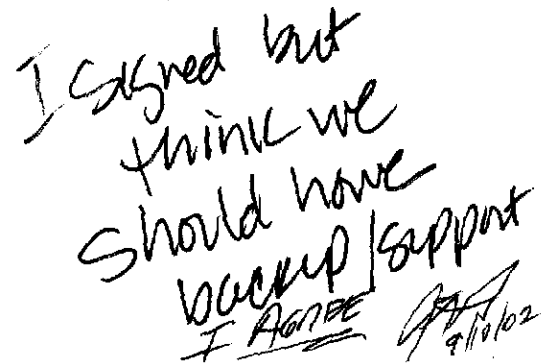 I signed but
think we
should have
backup/support
I AGREE
9/10/02